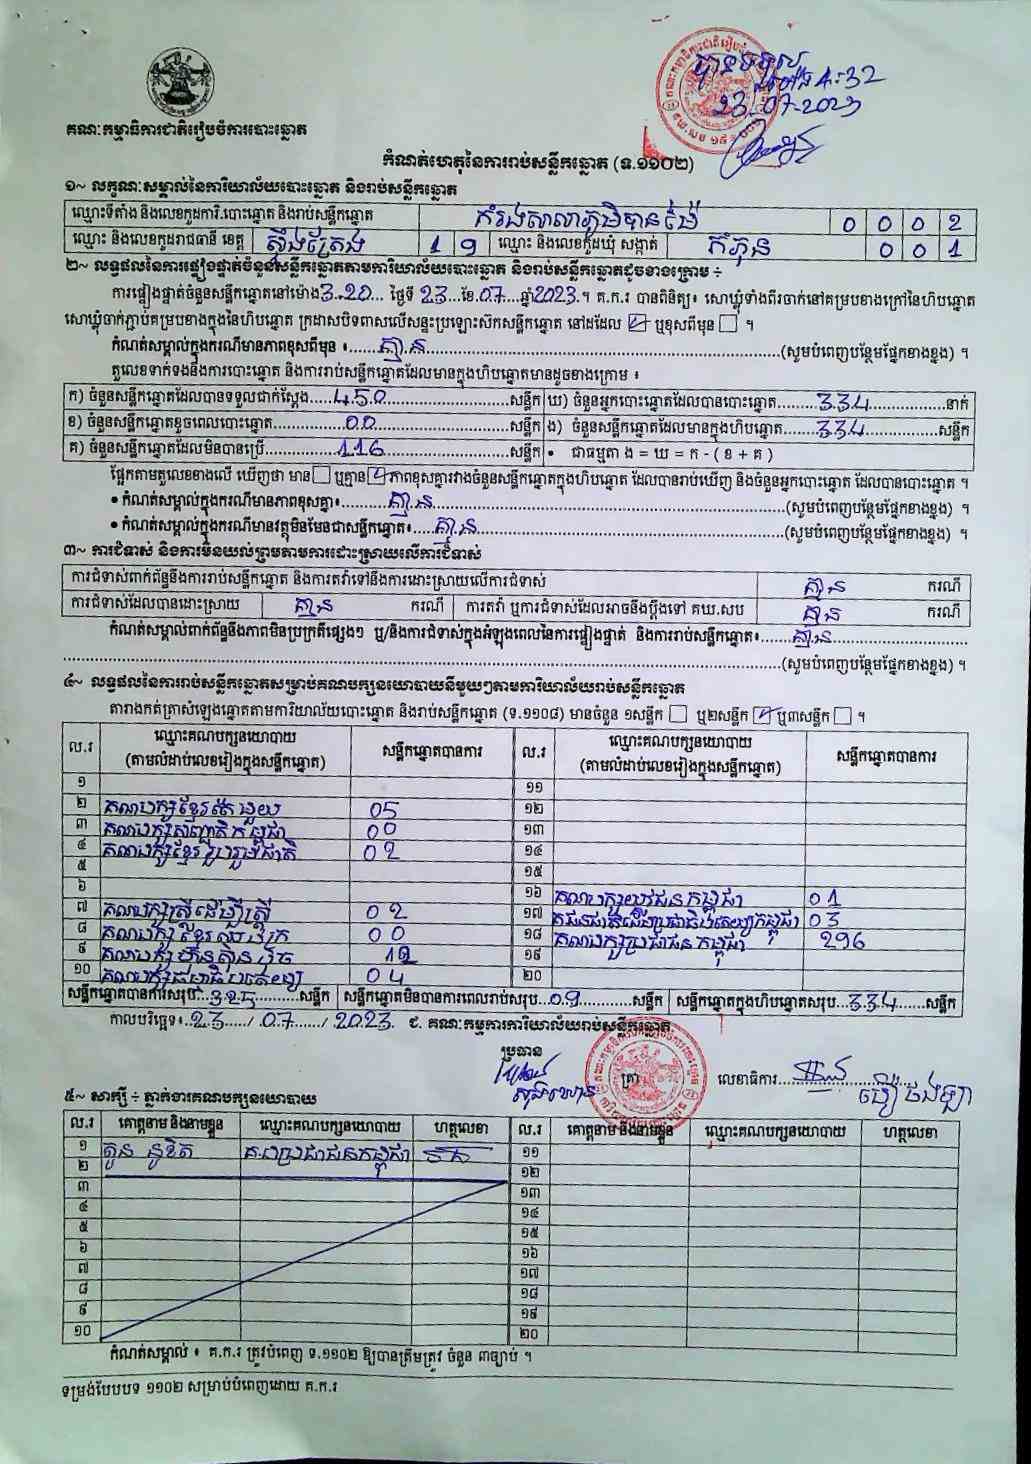 បានទទួល
ម៉ោង 4:32
23-07-2023
គណៈកម្មាធិការជាតិរៀបចំការបោះឆ្នោត
កំណត់ហេតុនៃការរាប់សន្លឹកឆ្នោត (ទ.១១០២)
១~ លក្ខណៈសម្គាល់នៃការិយាល័យបោះឆ្នោត និងរាប់សន្លឹកឆ្នោត
ឈ្មោះទីតាំង និងលេខកូដការិ.បោះឆ្នោត និងរាប់សន្លឹកឆ្នោត 0 0 0 2
ឈ្មោះ និងលេខកូដរាជធានី ខេត្ត ស្ទឹងត្រែង 1 9 ឈ្មោះ និងលេខកូដឃុំ សង្កាត់ កំភុន 0 0 1
២~ លទ្ធផលនៃការផ្ទៀងផ្ទាត់ចំនួនសន្លឹកឆ្នោតតាមការិយាល័យបោះឆ្នោត និងរាប់សន្លឹកឆ្នោតដូចខាងក្រោម ÷
ការផ្ទៀងផ្ទាត់ចំនួនសន្លឹកឆ្នោតនៅម៉ោង 3:20 ថ្ងៃទី 23 ខែ 07 ឆ្នាំ 2023 ។ គ.ក.រ បានពិនិត្យ៖ សោឃ្លុំទាំងពីរចាក់នៅគម្របខាងក្រៅនៃហិបឆ្នោត
សោឃ្លុំចាក់ភ្ជាប់គម្របខាងក្នុងនៃហិបឆ្នោត ក្រដាសបិទពាសលើសន្ទះប្រឡោះស៊កសន្លឹកឆ្នោត នៅដដែល ☑ ឬខុសពីមុន ☐ ។
កំណត់សម្គាល់ក្នុងករណីមានភាពខុសពីមុន ៖ គ្មាន (សូមបំពេញបន្ថែមផ្នែកខាងខ្នង) ។
តួលេខទាក់ទងនឹងការបោះឆ្នោត និងការរាប់សន្លឹកឆ្នោតដែលមានក្នុងហិបឆ្នោតមានដូចខាងក្រោម ៖
ក) ចំនួនសន្លឹកឆ្នោតដែលបានទទួលជាក់ស្តែង 450 សន្លឹក ឃ) ចំនួនអ្នកបោះឆ្នោតដែលបានបោះឆ្នោត 334 នាក់
ខ) ចំនួនសន្លឹកឆ្នោតខូចពេលបោះឆ្នោត 00 សន្លឹក ង) ចំនួនសន្លឹកឆ្នោតដែលមានក្នុងហិបឆ្នោត 334 សន្លឹក
គ) ចំនួនសន្លឹកឆ្នោតដែលមិនបានប្រើ 116 សន្លឹក • ជាធម្មតា ង = ឃ = ក - ( ខ + គ )
ផ្អែកតាមតួលេខខាងលើ ឃើញថា មាន ☐ ឬគ្មាន ☑ ភាពខុសគ្នារវាងចំនួនសន្លឹកឆ្នោតក្នុងហិបឆ្នោត ដែលបានរាប់ឃើញ និងចំនួនអ្នកបោះឆ្នោត ដែលបានបោះឆ្នោត ។
• កំណត់សម្គាល់ក្នុងករណីមានភាពខុសគ្នា៖ គ្មាន (សូមបំពេញបន្ថែមផ្នែកខាងខ្នង) ។
• កំណត់សម្គាល់ក្នុងករណីមានវត្ថុមិនមែនជាសន្លឹកឆ្នោត៖ គ្មាន (សូមបំពេញបន្ថែមផ្នែកខាងខ្នង) ។
៣~ ការជំទាស់ និងការមិនយល់ព្រមតាមការដោះស្រាយលើការជំទាស់
ការជំទាស់ពាក់ព័ន្ធនឹងការរាប់សន្លឹកឆ្នោត និងការតវ៉ាទៅនឹងការដោះស្រាយលើការជំទាស់ គ្មាន ករណី
ការជំទាស់ដែលបានដោះស្រាយ គ្មាន ករណី ការតវ៉ា ឬការជំទាស់ដែលអាចនឹងប្តឹងទៅ គឃ.សប គ្មាន ករណី
កំណត់សម្គាល់ពាក់ព័ន្ធនឹងភាពមិនប្រក្រតីផ្សេងៗ ឬ/និងការជំទាស់ក្នុងអំឡុងពេលនៃការផ្ទៀងផ្ទាត់ និងការរាប់សន្លឹកឆ្នោត៖ គ្មាន
(សូមបំពេញបន្ថែមផ្នែកខាងខ្នង) ។
៤~ លទ្ធផលនៃការរាប់សន្លឹកឆ្នោតសម្រាប់គណបក្សនយោបាយនីមួយៗតាមការិយាល័យរាប់សន្លឹកឆ្នោត
តារាងកត់ត្រាសំឡេងឆ្នោតតាមការិយាល័យបោះឆ្នោត និងរាប់សន្លឹកឆ្នោត (ទ.១១០៨) មានចំនួន ១សន្លឹក ☐ ឬ២សន្លឹក ☑ ឬ៣សន្លឹក ☐ ។
ល.រ ឈ្មោះគណបក្សនយោបាយ (តាមលំដាប់លេខរៀងក្នុងសន្លឹកឆ្នោត) សន្លឹកឆ្នោតបានការ ល.រ ឈ្មោះគណបក្សនយោបាយ (តាមលំដាប់លេខរៀងក្នុងសន្លឹកឆ្នោត) សន្លឹកឆ្នោតបានការ
១ ១១
២ គណបក្សខ្មែរតែមួយ 05 ១២
៣ គណបក្សសញ្ជាតិកម្ពុជា 00 ១៣
៤ គណបក្សខ្មែររួបរួមជាតិ 02 ១៤
៥ ១៥
៦ ១៦ គណបក្សយុវជនកម្ពុជា 01
៧ គណបក្សស្ត្រីដើម្បីស្ត្រី 02 ១៧ គ.ជនជាតិដើមប្រជាធិបតេយ្យកម្ពុជា 03
៨ គណបក្សខ្មែរអភិរក្ស 00 ១៨ គណបក្សប្រជាជនកម្ពុជា 296
៩ គណបក្សហ្វ៊ុនស៊ិនប៉ិច 12 ១៩
១០ គណបក្សធម្មាធិបតេយ្យ 04 ២០
សន្លឹកឆ្នោតបានការសរុប 325 សន្លឹក សន្លឹកឆ្នោតមិនបានការពេលរាប់សរុប 09 សន្លឹក សន្លឹកឆ្នោតក្នុងហិបឆ្នោតសរុប 334 សន្លឹក
កាលបរិច្ឆេទ៖ 23 / 07 / 2023 ជ. គណៈកម្មការការិយាល័យរាប់សន្លឹកឆ្នោត
ប្រធាន ត្រា លេខាធិការ
៥~ សាក្សី ÷ ភ្នាក់ងារគណបក្សនយោបាយ
ល.រ គោត្តនាម និងនាមខ្លួន ឈ្មោះគណបក្សនយោបាយ ហត្ថលេខា ល.រ គោត្តនាម និងនាមខ្លួន ឈ្មោះគណបក្សនយោបាយ ហត្ថលេខា
១ គ.បប្រជាជនកម្ពុជា ១១
២ ១២
៣ ១៣
៤ ១៤
៥ ១៥
៦ ១៦
៧ ១៧
៨ ១៨
៩ ១៩
១០ ២០
កំណត់សម្គាល់ ៖ គ.ក.រ ត្រូវបំពេញ ទ.១១០២ ឱ្យបានត្រឹមត្រូវ ចំនួន ៣ច្បាប់ ។
ទម្រង់បែបបទ ១១០២ សម្រាប់បំពេញដោយ គ.ក.រ